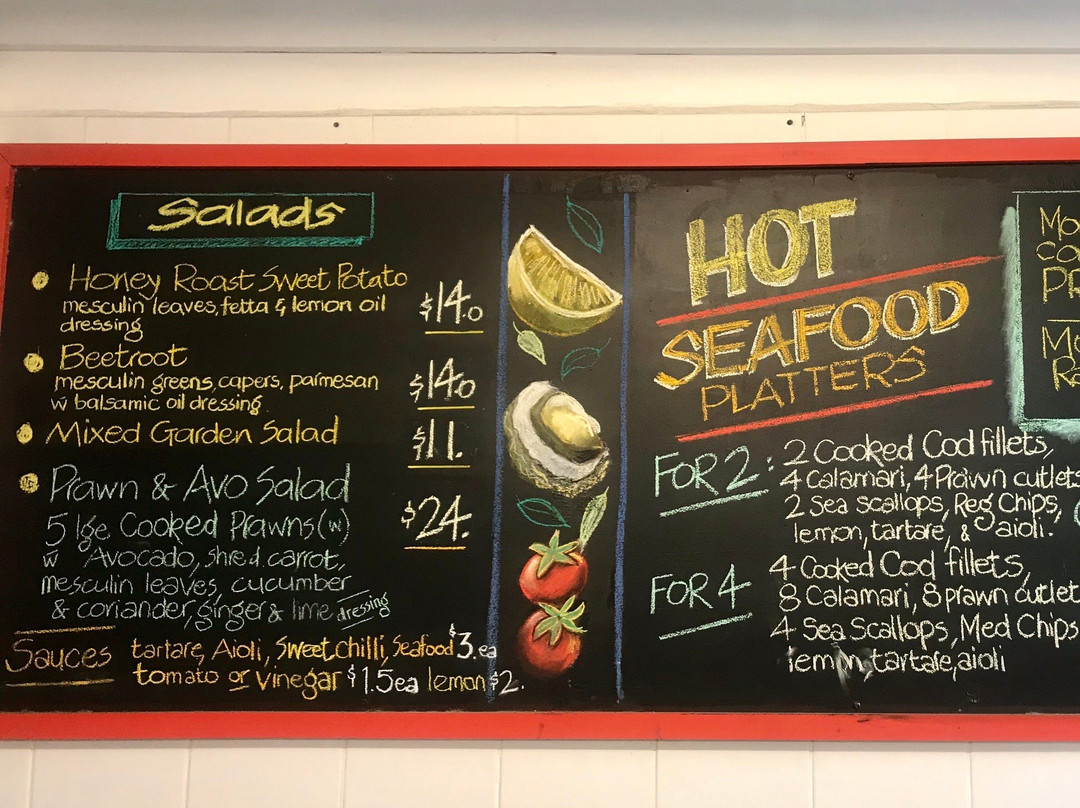 Salads
Honey Roast Sweet Potato
mesculin leaves, fetta & lemon oil
dressing
$14.0
Beetroot
mesculin greens, capers, parmesan
w balsamic oil dressing
$14.0
Mixed Garden Salad
$11.
Prawn & Avo Salad
5 lge Cooked Prawns (w)
w Avocado, shred. carrot,
mesculin leaves, cucumber
& coriander, ginger & lime dressing
$24.
Sauces
tartare, Aioli, Sweet chilli, Seafood $3. ea
tomato or vinegar $1.5ea lemon $2.
HOT
SEAFOOD
PLATTERS
FOR 2:
2 Cooked Cod fillets,
4 calamari, 4 Prawn cutlets
2 Sea scallops, Reg Chips,
lemon, tartare, & aioli.
FOR 4
4 Cooked Cod fillets,
8 Calamari, 8 prawn cutlet
4 Sea Scallops, Med Chips
lemon, tartare, aioli